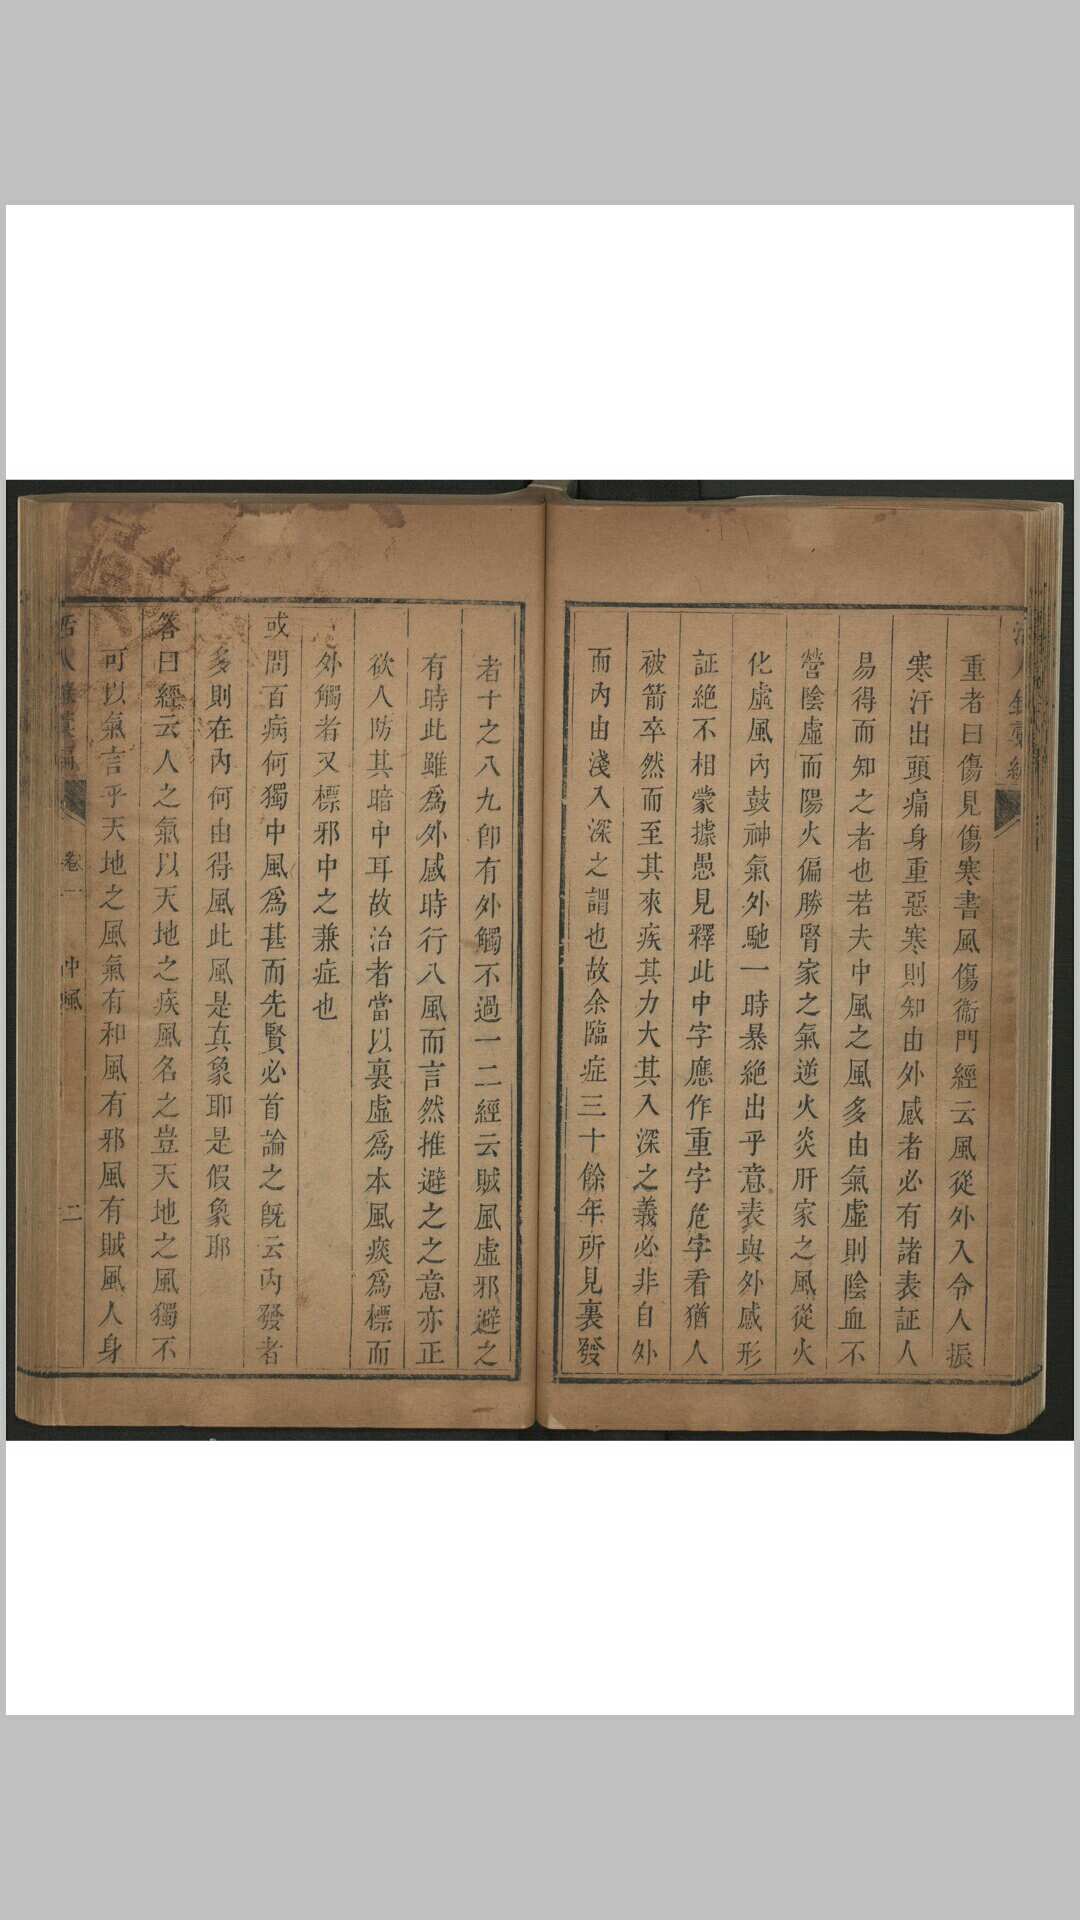 重者曰傷見傷寒書風傷衞門經云風從外入令人振
寒汗出頭痛身重惡寒則知由外感者必有諸表証人
易得而知之者也若夫中風之風多由氣虛則陰血不
營陰虛而陽火偏勝腎家之氣逆火炎肝家之風從火
化虛風內鼓神氣外馳一時暴絕出乎意表與外感形
証絕不相蒙據愚見釋此中字應作重字危字看猶人
被箭卒然而至其來疾其力大其入深之義必非自外
而內由淺入深之謂也故余臨症三十餘年所見裏發
者十之八九卽有外觸不過一二經云賊風虛邪避之
有時此雖爲外感時行八風而言然推避之之意亦正
欲人防其暗中耳故治者當以裏虛爲本風痰爲標而
外觸者又標邪中之兼症也
或問百病何獨中風爲甚而先賢必首論之旣云內發者
多則在內何由得風此風是真象耶是假象耶
答曰經云人之氣以天地之疾風名之豈天地之風獨不
可以氣言乎天地之風氣有和風有邪風有賊風人身
卷一
中風
二